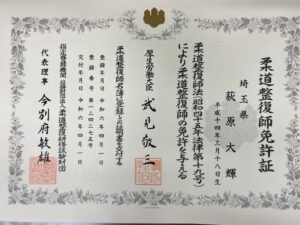 柔道整復師免許証
埼玉県
萩原大輝
平成十四年三月十八日生
柔道整復師法(昭和四十五年法律第十九号)
により柔道整復師の免許を与える
厚生労働大臣 武見敬三
柔道整復師名簿に登録した証明書を交付する
登録年月日 令和六年四月一日
登録番号 第一二四二七五号
交付年月日 令和六年四月一日
指定登録機関 公益財団法人 柔道整復研修試験財団
代表理事 今別府敏雄